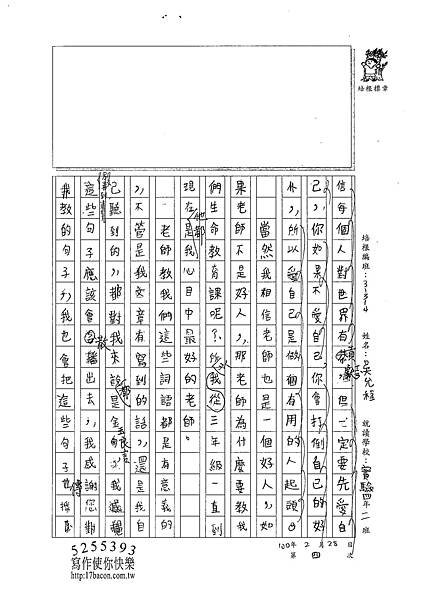 培根標章
培根編班:31314 姓名:吳允程 就讀學校:實驗四年一班
信每個人對世界有積獻,但一定要先愛自
己,你如果不愛自己,你會打倒自己的好
朴,所以愛自己是做個有用的人起頭。
當然我相信老師也是一個好人,如
果老師不是好人,那老師為什麼要教我
們生命教育課呢?所以我從三年級一直到
現在他都是我心目中最好的老師。
老師教我們這些詞語都是有意義的
,不管是我文章有寫到的話,還是我自
己聽到的,都對我來說是金玉良言。我
這些句子應該會散播出去,我感謝您對
我教的句子,我也會把這些句子傳
100年2月25日
第 四 次
5255393
寫作使你快樂
http://17bacon.com.tw/